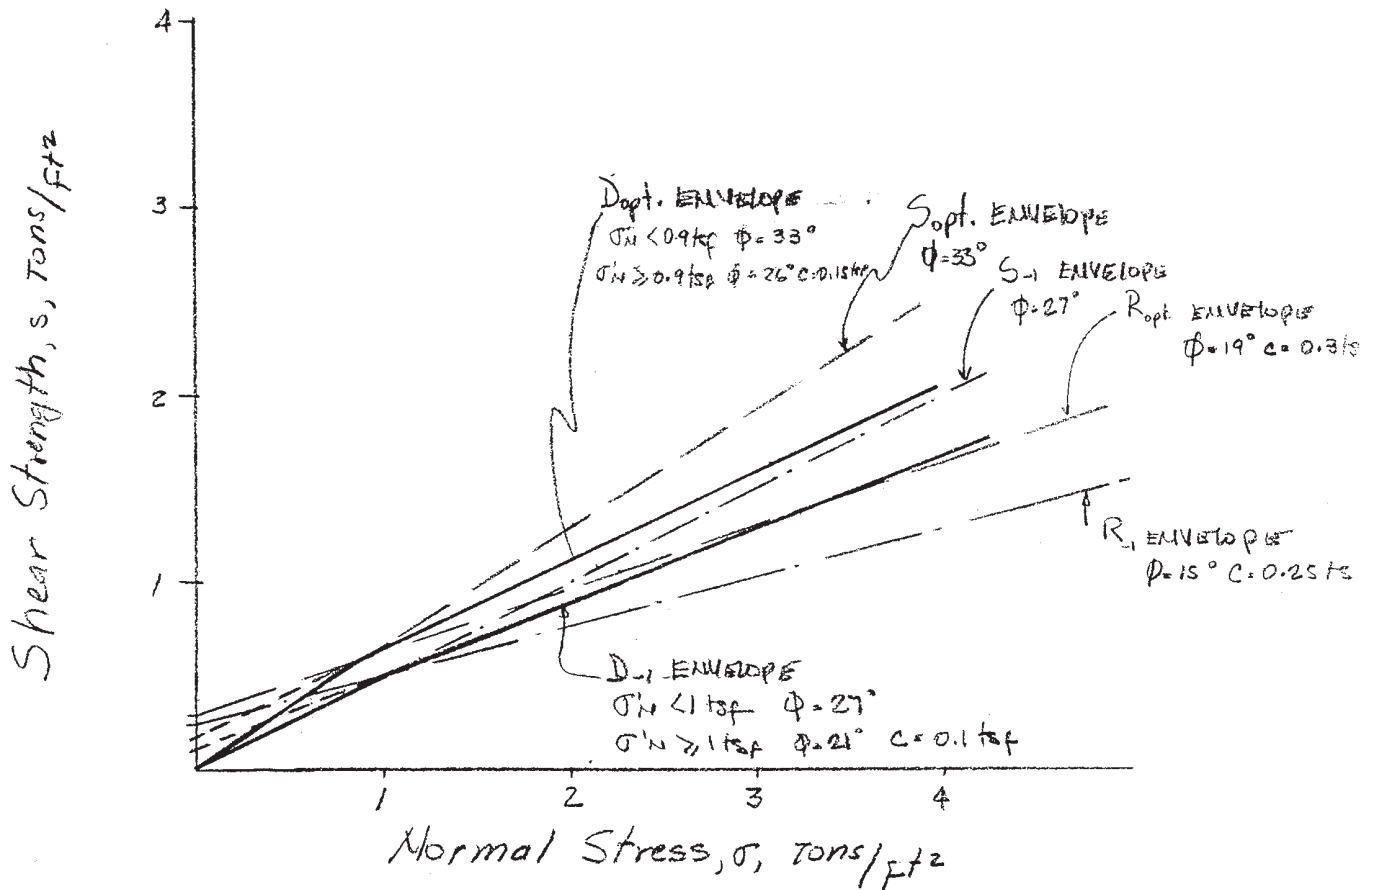 4
3
2
1
Shear Strength, s, Tons/ft²
Dopt. ENVELOPE
σ'N < 0.9 tsf φ = 33°
σ'N ≥ 0.9 tsf φ = 26° c = 0.15 tsf
Sopt. ENVELOPE
φ = 33°
S-1 ENVELOPE
φ = 27°
Ropt. ENVELOPE
φ = 19° c = 0.3 ts
R-1 ENVELOPE
φ = 15° C = 0.25 ts
D-1 ENVELOPE
σ'N < 1 tsf φ = 27°
σ'N ≥ 1 tsf φ = 21° C = 0.1 tsf
1 2 3 4
Normal Stress, σ, Tons/ft²